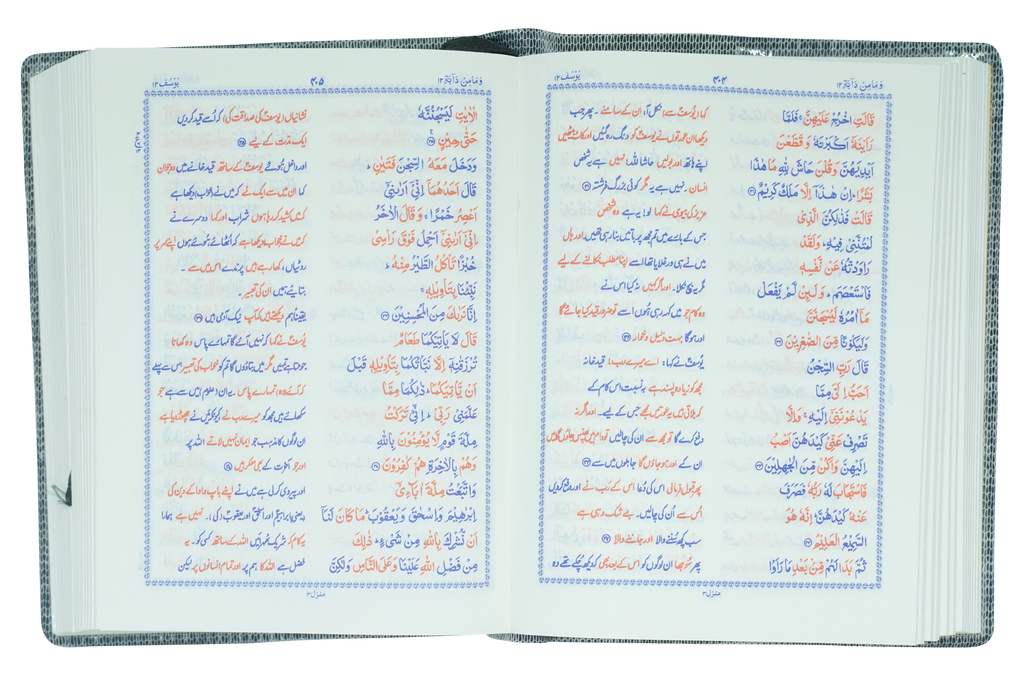 وَمَا مِنْ دَآبَّةٍ ۱۲
۴۰۴
یُوْسُف ۱۲
قَالَتِ اخْرُجْ عَلَیْهِنَّ ۚ فَلَمَّا
رَاَیْنَهٗۤ اَكْبَرْنَهٗ وَ قَطَّعْنَ
اَیْدِیَهُنَّ وَقُلْنَ حَاشَ لِلّٰهِ مَا هٰذَا
بَشَرًا ؕ اِنْ هٰذَاۤ اِلَّا مَلَكٌ كَرِیْمٌ ﴿۳۱﴾
قَالَتْ فَذٰلِكُنَّ الَّذِیْ
لُمْتُنَّنِیْ فِیْهِ ؕ وَلَقَدْ
رَاوَدْتُّهٗ عَنْ نَّفْسِهٖ
فَاسْتَعْصَمَ ؕ وَلَىِٕنْ لَّمْ یَفْعَلْ
مَاۤ اٰمُرُهٗ لَیُسْجَنَنَّ
وَلَیَكُوْنًا مِّنَ الصّٰغِرِیْنَ ﴿۳۲﴾
قَالَ رَبِّ السِّجْنُ
اَحَبُّ اِلَیَّ مِمَّا
یَدْعُوْنَنِیْۤ اِلَیْهِ ۚ وَاِلَّا
تَصْرِفْ عَنِّیْ كَیْدَهُنَّ اَصْبُ
اِلَیْهِنَّ وَاَكُنْ مِّنَ الْجٰهِلِیْنَ ﴿۳۳﴾
فَاسْتَجَابَ لَهٗ رَبُّهٗ فَصَرَفَ
عَنْهُ كَیْدَهُنَّ ؕ اِنَّهٗ هُوَ
السَّمِیْعُ الْعَلِیْمُ ﴿۳۴﴾
ثُمَّ بَدَا لَهُمْ مِّنْۢ بَعْدِ مَا رَاَوُا
کہا (یوسفؑ سے) نکل آ، ان کے سامنے۔ پھر جب
دیکھا ان عورتوں نے یوسفؑ کو دنگ رہ گئیں اور کاٹ بیٹھیں
اپنے ہاتھ اور بولیں حاشا للہ نہیں ہے یہ شخص
انسان۔ نہیں ہے یہ مگر کوئی بزرگ فرشتہ ﴿۳۱﴾
عزیز کی بیوی نے کہا لو! یہ ہے وہ شخص
جس کے بارے میں تم مجھ پر باتیں بنا رہی تھیں اور ہاں
میں نے ہی ورغلایا تھا اسے اپنا مطلب نکالنے کے لیے
مگر یہ بچ نکلا۔ اور اگر نہیں نہ کیا اس نے
وہ کام جو میں کہہ رہی ہوں اسے تو ضرور قید کیا جائے گا
اور ہوگا بہت ذلیل و خوار ﴿۳۲﴾
یوسفؑ نے کہا : اے میرے رب! قید خانہ
مجھ کو زیادہ پسند ہے بہ نسبت اس کام کے
کہ بلاتی ہیں یہ عورتیں مجھے جس کے لیے۔ اور اگر نہ
دفع کرے گا تو مجھ سے ان کی چالیں تو دام میں پھنس جاؤں گا میں
ان کے اور ہو جاؤں گا جاہلوں میں سے ﴿۳۳﴾
پھر قبول فرمائی اس کی دعا اس کے رب نے اور دفع کر دیں
اُس سے اُن کی چالیں۔ بے شک وہی ہے
سب کچھ سننے والا اور جاننے والا ﴿۳۴﴾
پھر سوجھا ان لوگوں کو اس کے بعد بھی کہ دیکھ چکے تھے وہ
منزل ۳
وَمَا مِنْ دَآبَّةٍ ۱۲
۴۰۵
یُوْسُف ۱۲
الْاٰیٰتِ لَیَسْجُنُنَّهٗ
حَتّٰى حِیْنٍ ﴿۳۵﴾
وَدَخَلَ مَعَهُ السِّجْنَ فَتَیٰنِ ؕ
قَالَ اَحَدُهُمَاۤ اِنِّیْۤ اَرٰىنِیْۤ
اَعْصِرُ خَمْرًا ۚ وَقَالَ الْاٰخَرُ
اِنِّیْۤ اَرٰىنِیْۤ اَحْمِلُ فَوْقَ رَاْسِیْ
خُبْزًا تَاْكُلُ الطَّیْرُ مِنْهُ ؕ
نَبِّئْنَا بِتَاْوِیْلِهٖ ۚ
اِنَّا نَرٰىكَ مِنَ الْمُحْسِنِیْنَ ﴿۳۶﴾
قَالَ لَا یَاْتِیْكُمَا طَعَامٌ
تُرْزَقٰنِهٖۤ اِلَّا نَبَّاْتُكُمَا بِتَاْوِیْلِهٖ قَبْلَ
اَنْ یَّاْتِیَكُمَا ؕ ذٰلِكُمَا مِمَّا
عَلَّمَنِیْ رَبِّیْ ؕ اِنِّیْ تَرَكْتُ
مِلَّةَ قَوْمٍ لَّا یُؤْمِنُوْنَ بِاللّٰهِ
وَهُمْ بِالْاٰخِرَةِ هُمْ كٰفِرُوْنَ ﴿۳۷﴾
وَاتَّبَعْتُ مِلَّةَ اٰبَآءِیْۤ
اِبْرٰهِیْمَ وَاِسْحٰقَ وَیَعْقُوْبَ ؕ مَا كَانَ لَنَاۤ
اَنْ نُّشْرِكَ بِاللّٰهِ مِنْ شَیْءٍ ؕ ذٰلِكَ
مِنْ فَضْلِ اللّٰهِ عَلَیْنَا وَعَلَى النَّاسِ وَلٰكِنَّ
نشانیاں (یوسفؑ کی صداقت کی) کہ اُسے قید کر دیں
ایک مدت کے لیے ﴿۳۵﴾
اور داخل ہوئے یوسفؑ کے ساتھ قید خانے میں دو جوان
کہا ان میں سے ایک نے کہ میں نے (خواب) دیکھا ہے
کہ میں کشید کر رہا ہوں شراب اور کہا دوسرے نے
کہ میں نے خواب دیکھا ہے کہ اُٹھائے ہوئے ہوں اپنے سر پر
روٹیاں، کھا رہے ہیں پرندے اس میں سے ۔
بتائیے ہمیں ان کی تعبیر۔
یقیناً ہم دیکھتے ہیں کہ آپ نیک آدمی ہیں ﴿۳۶﴾
یوسفؑ نے کہا کہ نہیں آئے گا تمہارے پاس وہ کھانا
جو ملتا ہے تمہیں مگر میں بتا دوں گا تم کو خواب کی تعبیر اس سے پہلے
کہ آئے وہ تمہارے پاس۔ یہ ان (علوم) میں سے ہے جو
سکھائے ہیں مجھ کو میرے رب نے کیونکہ میں نے چھوڑ دیا ہے
ان لوگوں کا مذہب جو ایمان نہیں لاتے اللہ پر
اور جو آخرت کے بھی منکر ہیں ﴿۳۷﴾
اور پیروی کر لی ہے میں نے اپنے باپ دادا کے دین کی
(یعنی) ابراہیمؑ اور اسحٰقؑ اور یعقوبؑ (کی)۔ نہیں ہے ہمارا
یہ کام کہ شریک ٹھہرائیں اللہ کے ساتھ کسی کو۔ یہ
فضل ہے اللہ کا ہم پر اور تمام انسانوں پر لیکن
منزل ۳